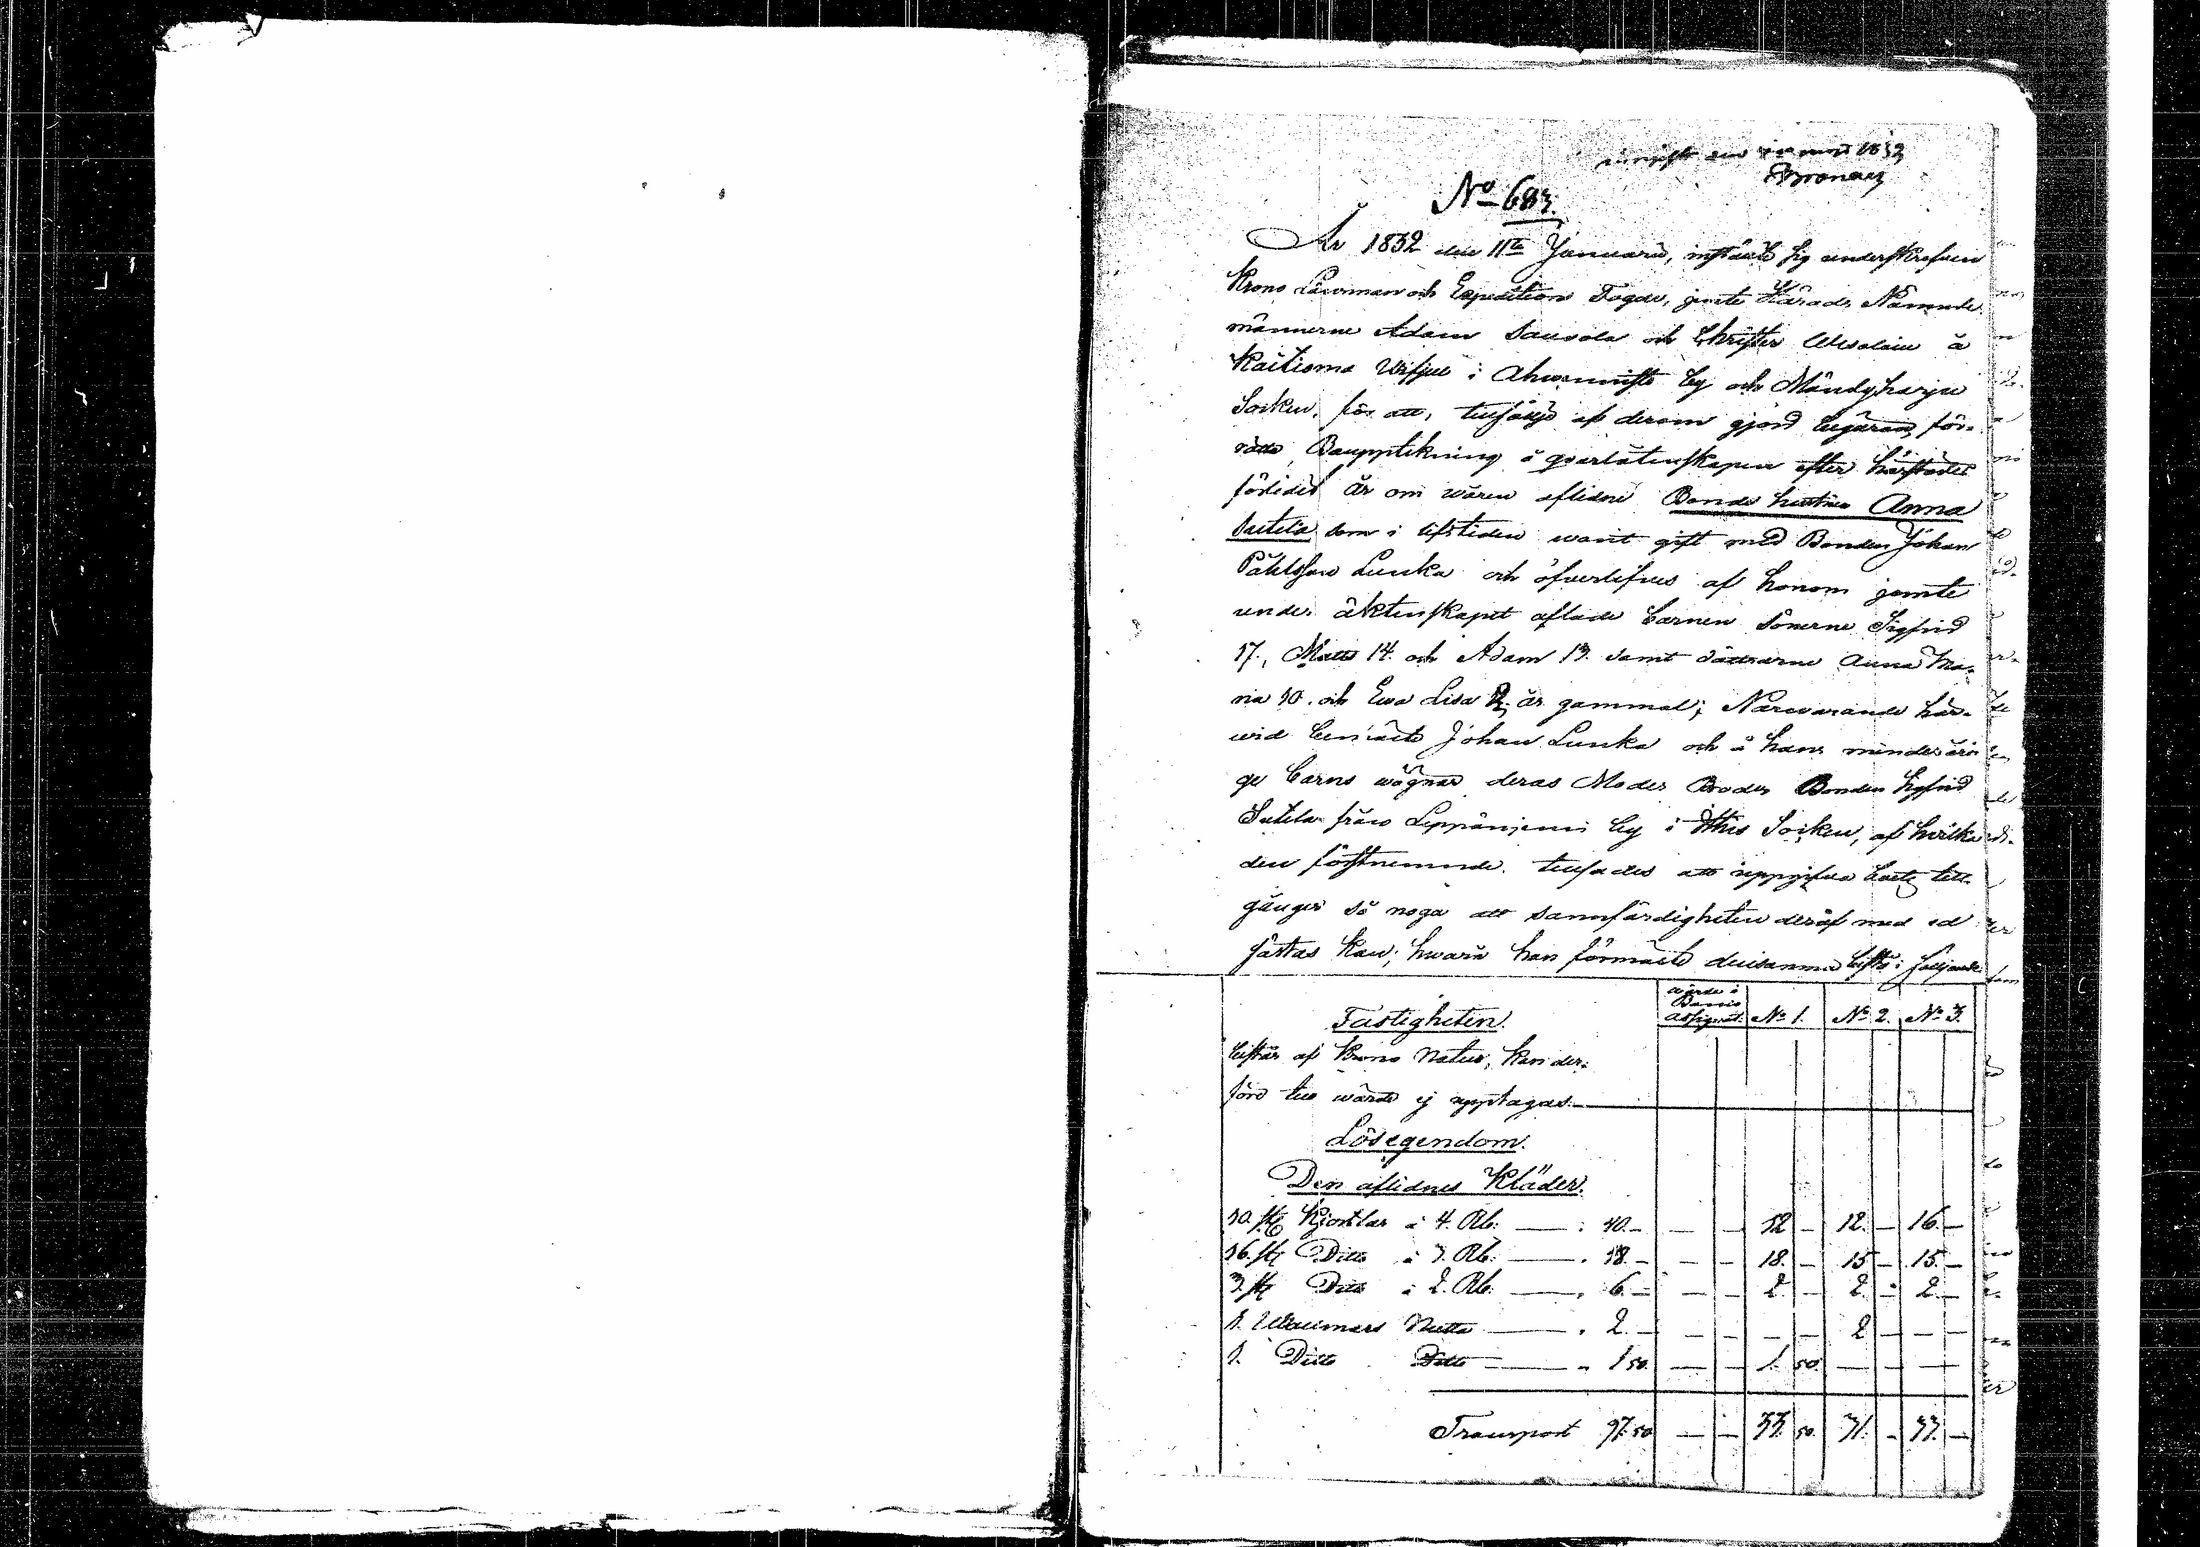 1832
No 683.
År 1832 den 11te Januarii, instälte sig underskrefven
Krono Länsman och Expeditions Fogde, jemte Härads Nämnde-
männerne Adam Sawola och Christer Wesalain å
Kaitisma Rusthåll i Ahwenniste by och Mändyharju
Socken, för att, till följd af derom gjord begäran, för-
rätta Bouppteckning å qvarlåtenskapen efter härstädes
förledit år om våren aflidne Bonde hustrun Anna
Sutela som i lifstiden warit gift med Bonden Johan
Påhlsson Lunka och öfverlefves af honom jemte
under äktenskapet aflade barnen Sönerne Sigfrid
17, Matts 14 och Adam 13 samt döttrarne Anna Ma-
ria 10 och Ewa Lisa 2 år gammal; Närwarande här-
wid bemälte Johan Lunka och å hans minderåri-
ge barns wägnar deras Moder Broder Bonden Sigfrid
Sutela från Leppäniemi by i Ithis Socken, af hvilka
den förstnemnde tillsades att uppgifva boets till-
gångar så noga att sannfärdigheten deraf med ed
fästas kan; hwarå han förmälte densamma bestå i följande
Fastigheten.
wärde i Banco Assignat. No 1. No 2. No 3.
består af Krono Natur, kan der-
före till wärde ej upptagas.
Lösegendom.
Den aflidnes Kläder.
10. st. Kjortlar à 4. Rb: — 40. — — — 12 — 12. — 16. —
16. st. Ditto à 3. Rb: — 48. — — — 18. — 15 — 15. —
3. st. Ditto à 2. Rb: — 6. — — — 2 — 2. — 2. —
1. Wallmars Nutta — 2. — — — — — 2 — — —
1. Ditto Ditto — 1 50. — — 1. 50. — — — —
Transport 97. 50 — — 33. 50. 31. — 33. —